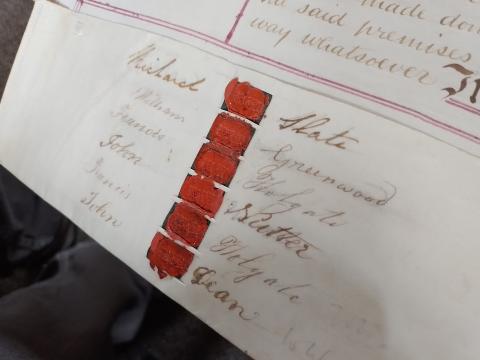 made don
said premises
way whatsoever In
Richard Slate
William Greenwood
Francis Holgate
John Nutter
Francis Holgate
John Dean